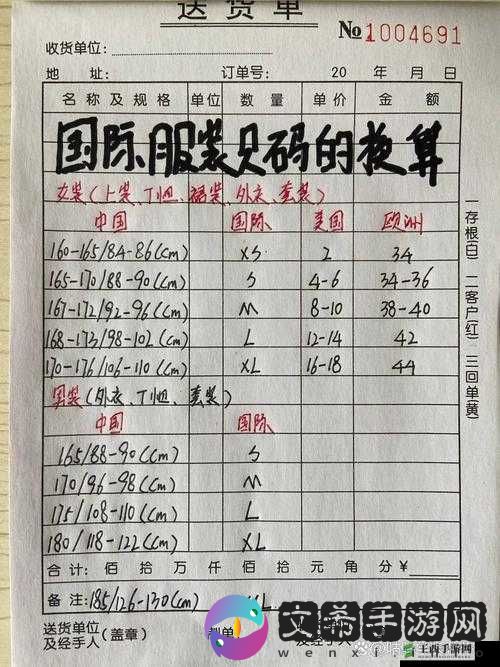 送货单
№1004691
收货单位:
地 址: 订单号: 20 年 月 日
名称及规格 单位 数量 单价 金额
国际服装尺码的换算
女装(上装、T恤、裙装、外衣、套装)
中国 国际 美国 欧洲
160-165/84-86(cm) XS 2 34
165-170/88-90(cm) S 4-6 34-36
167-172/92-96(cm) M 8-10 38-40
168-173/98-102(cm) L 12-14 42
170-176/106-110(cm) XL 16-18 44
男装(外衣、T恤、套装)
中国 国际
165/88-90(cm) S
170/96-98(cm) M
175/108-110(cm) L
180/118-122(cm) XL
合计: 佰 拾 万 仟 佰 拾 元 角 分 ¥
备注: 185/126-130(cm)
送货单位
及经手人(盖章)
及经手人
一存根(白) 二客户(红) 三回单(黄)
文希手游网